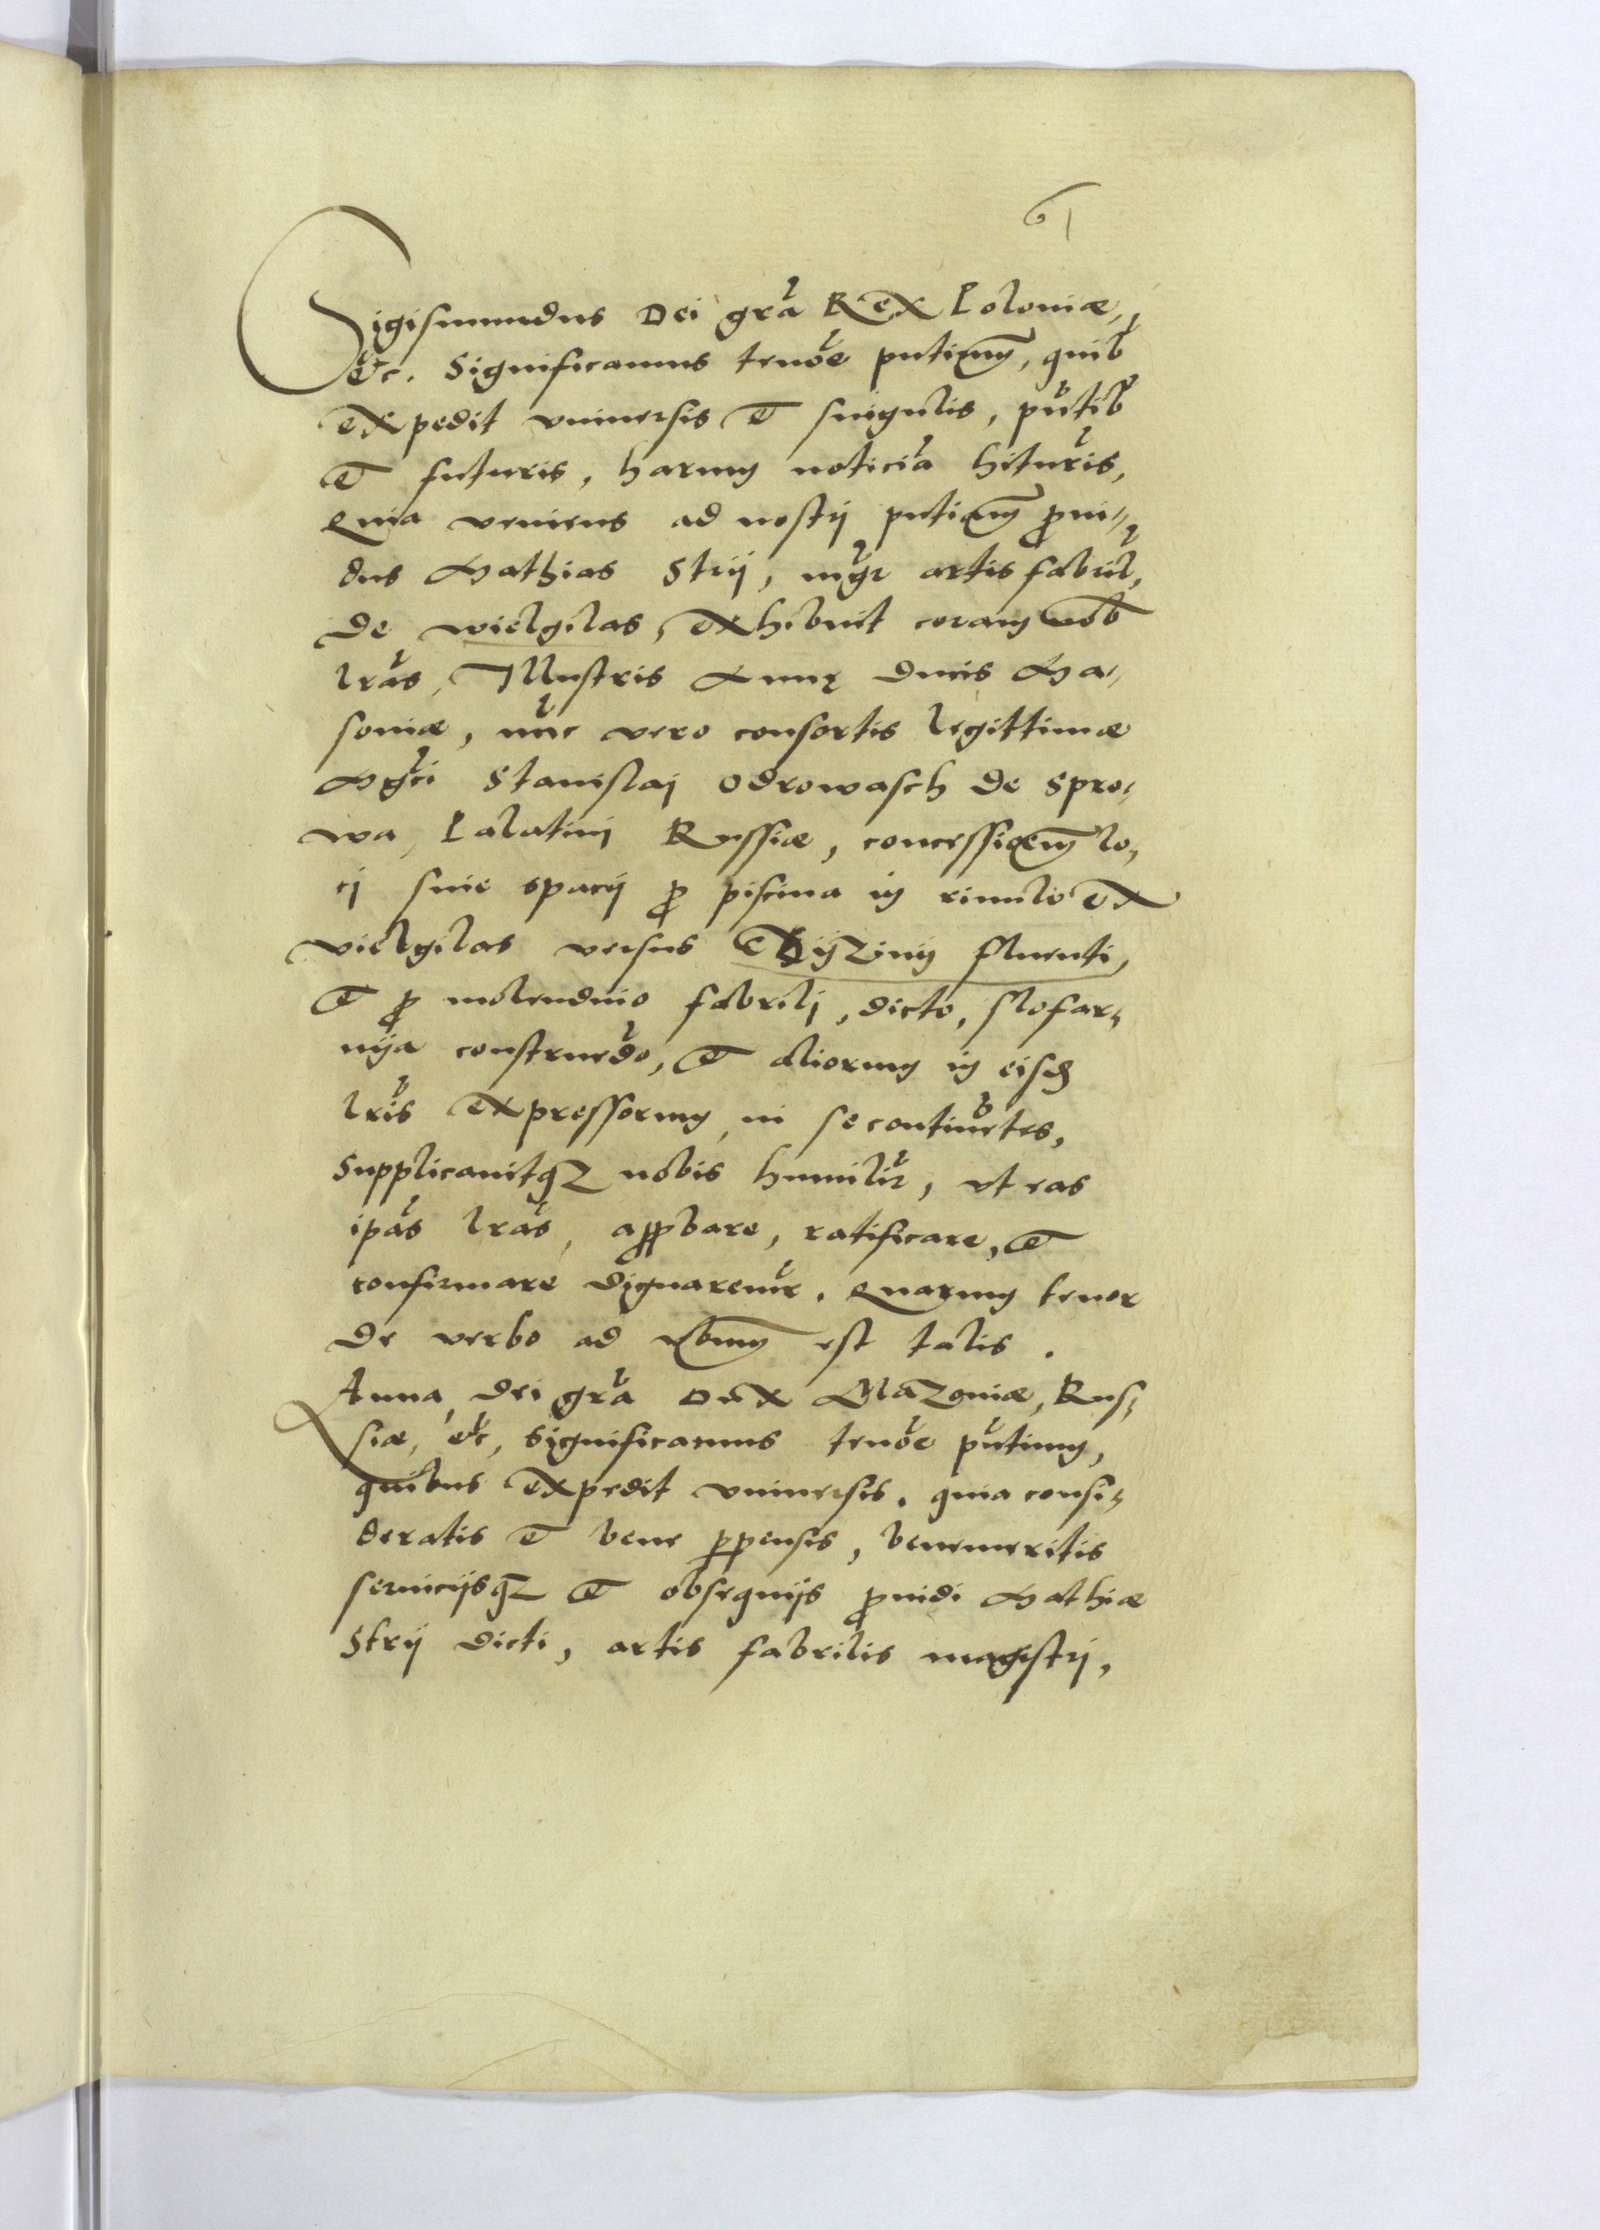 61
Sigismundus Dei gra Rex Poloniæ,
etc. Significamus tenore pntium, quib
expedit vniuersis et singulis, pntib
et futuris, harum noticia hituris,
Quia veniens ad nostrj pntiam proui-
dus Mathias Strij, mgr artis fabril,
de wielgilas, exhibuit coram nob
lras, Illustris Annę ducis Ma-
soniæ, nuc vero consortis legittimæ
Mgci Stanislaj Odrowasch de Spro-
wa, Palatinj Russiæ, concessionem lo-
cj siue spacij pro piscina in riuulo ex
vielgilas versus fluenti,
et pro molendino fabrilj, dicto, slosar-
nÿa construedo, et aliorum in eisd
lris expressorum, in se continetes,
Supplicauitq3 nobis humilir, vt eas
ipas lras, approbare, ratificare, et
confirmare dignaremr. Quarum tenor
de verbo ad vbum est talis.
Anna dei gra Dux Mazoniæ, Rus-
siæ, etc, Significamus tenore pntium,
quibus expedit vniuersis. quia consi-
deratis et bene propensis, benemeritis
seruicijsq3 et obsequijs prouidi Mathiæ
Strij dicti, artis fabrilis magistrj,